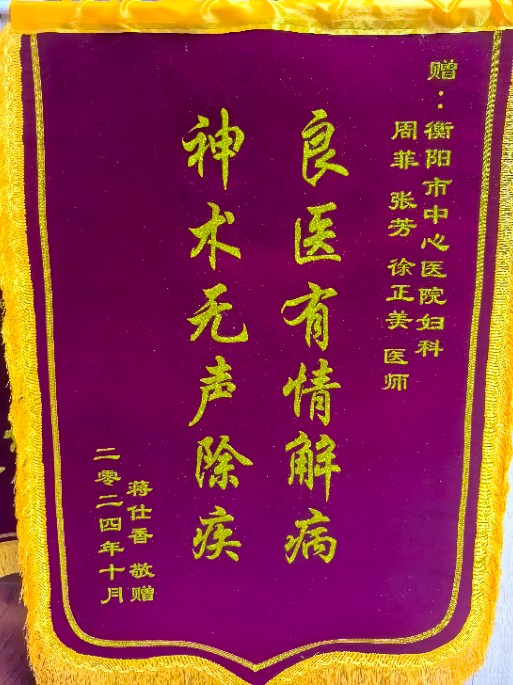 赠：衡阳市中心医院妇科
周菲 张芳 徐正美 医师
良医有情解病
神术无声除疾
蒋仕香 敬赠
二零二四年十月